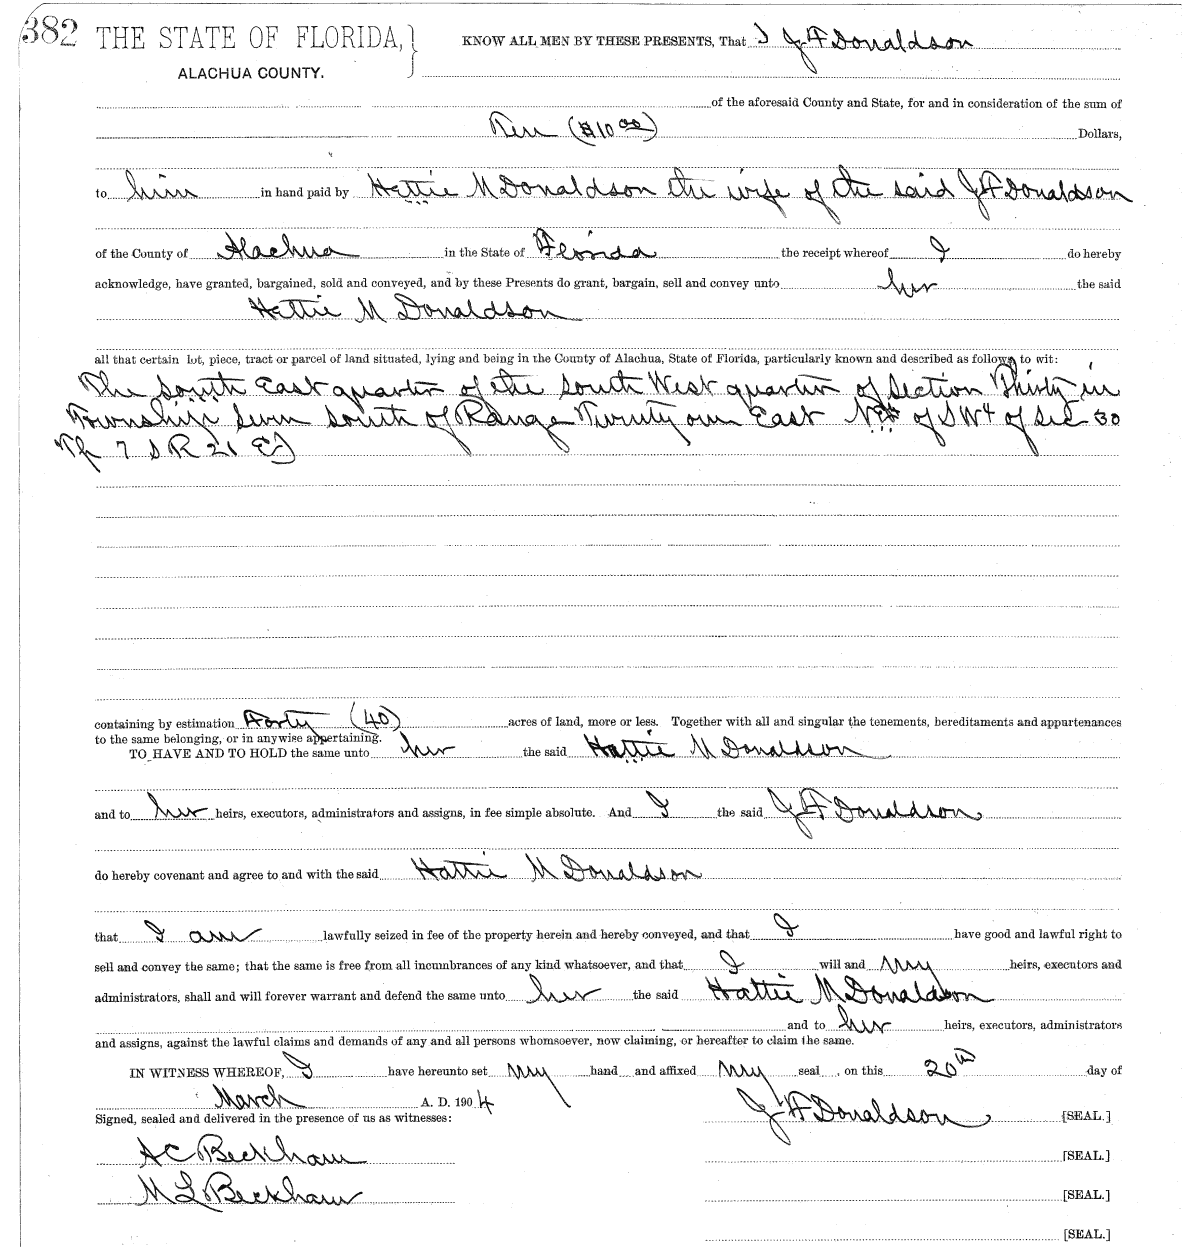 382 THE STATE OF FLORIDA, } KNOW ALL MEN BY THESE PRESENTS, That I J F Donaldson
ALACHUA COUNTY.
of the aforesaid County and State, for and in consideration of the sum of
Ten ($10 00) Dollars,
to him in hand paid by Hattie M Donaldson the wife of the said J F Donaldson
of the County of Alachua in the State of Florida the receipt whereof I do hereby
acknowledge, have granted, bargained, sold and conveyed, and by these Presents do grant, bargain, sell and convey unto her the said
Hattie M Donaldson
all that certain lot, piece, tract or parcel of land situated, lying and being in the County of Alachua, State of Florida, particularly known and described as follows to wit:
The South East quarter of the South West quarter of Section Thirty in
Township Seven South of Range Twenty one East of SW4 of Sec 30
Tp 7 S R 21 E)
containing by estimation Forty (40) acres of land, more or less. Together with all and singular the tenements, hereditaments and appurtenances
to the same belonging, or in anywise appertaining.
TO HAVE AND TO HOLD the same unto her the said Hattie M Donaldson
and to her heirs, executors, administrators and assigns, in fee simple absolute. And I the said J F Donaldson
do hereby covenant and agree to and with the said Hattie M Donaldson
that I am lawfully seized in fee of the property herein and hereby conveyed, and that I have good and lawful right to
sell and convey the same; that the same is free from all incumbrances of any kind whatsoever, and that I will and my heirs, executors and
administrators, shall and will forever warrant and defend the same unto her the said Hattie M Donaldson
and to her heirs, executors, administrators
and assigns, against the lawful claims and demands of any and all persons whomsoever, now claiming, or hereafter to claim the same.
IN WITNESS WHEREOF, I have hereunto set my hand and affixed my seal, on this 20th day of
March A. D. 1904 J F Donaldson [SEAL.]
Signed, sealed and delivered in the presence of us as witnesses:
A C Beckham [SEAL.]
M L Beckham [SEAL.]
[SEAL.]